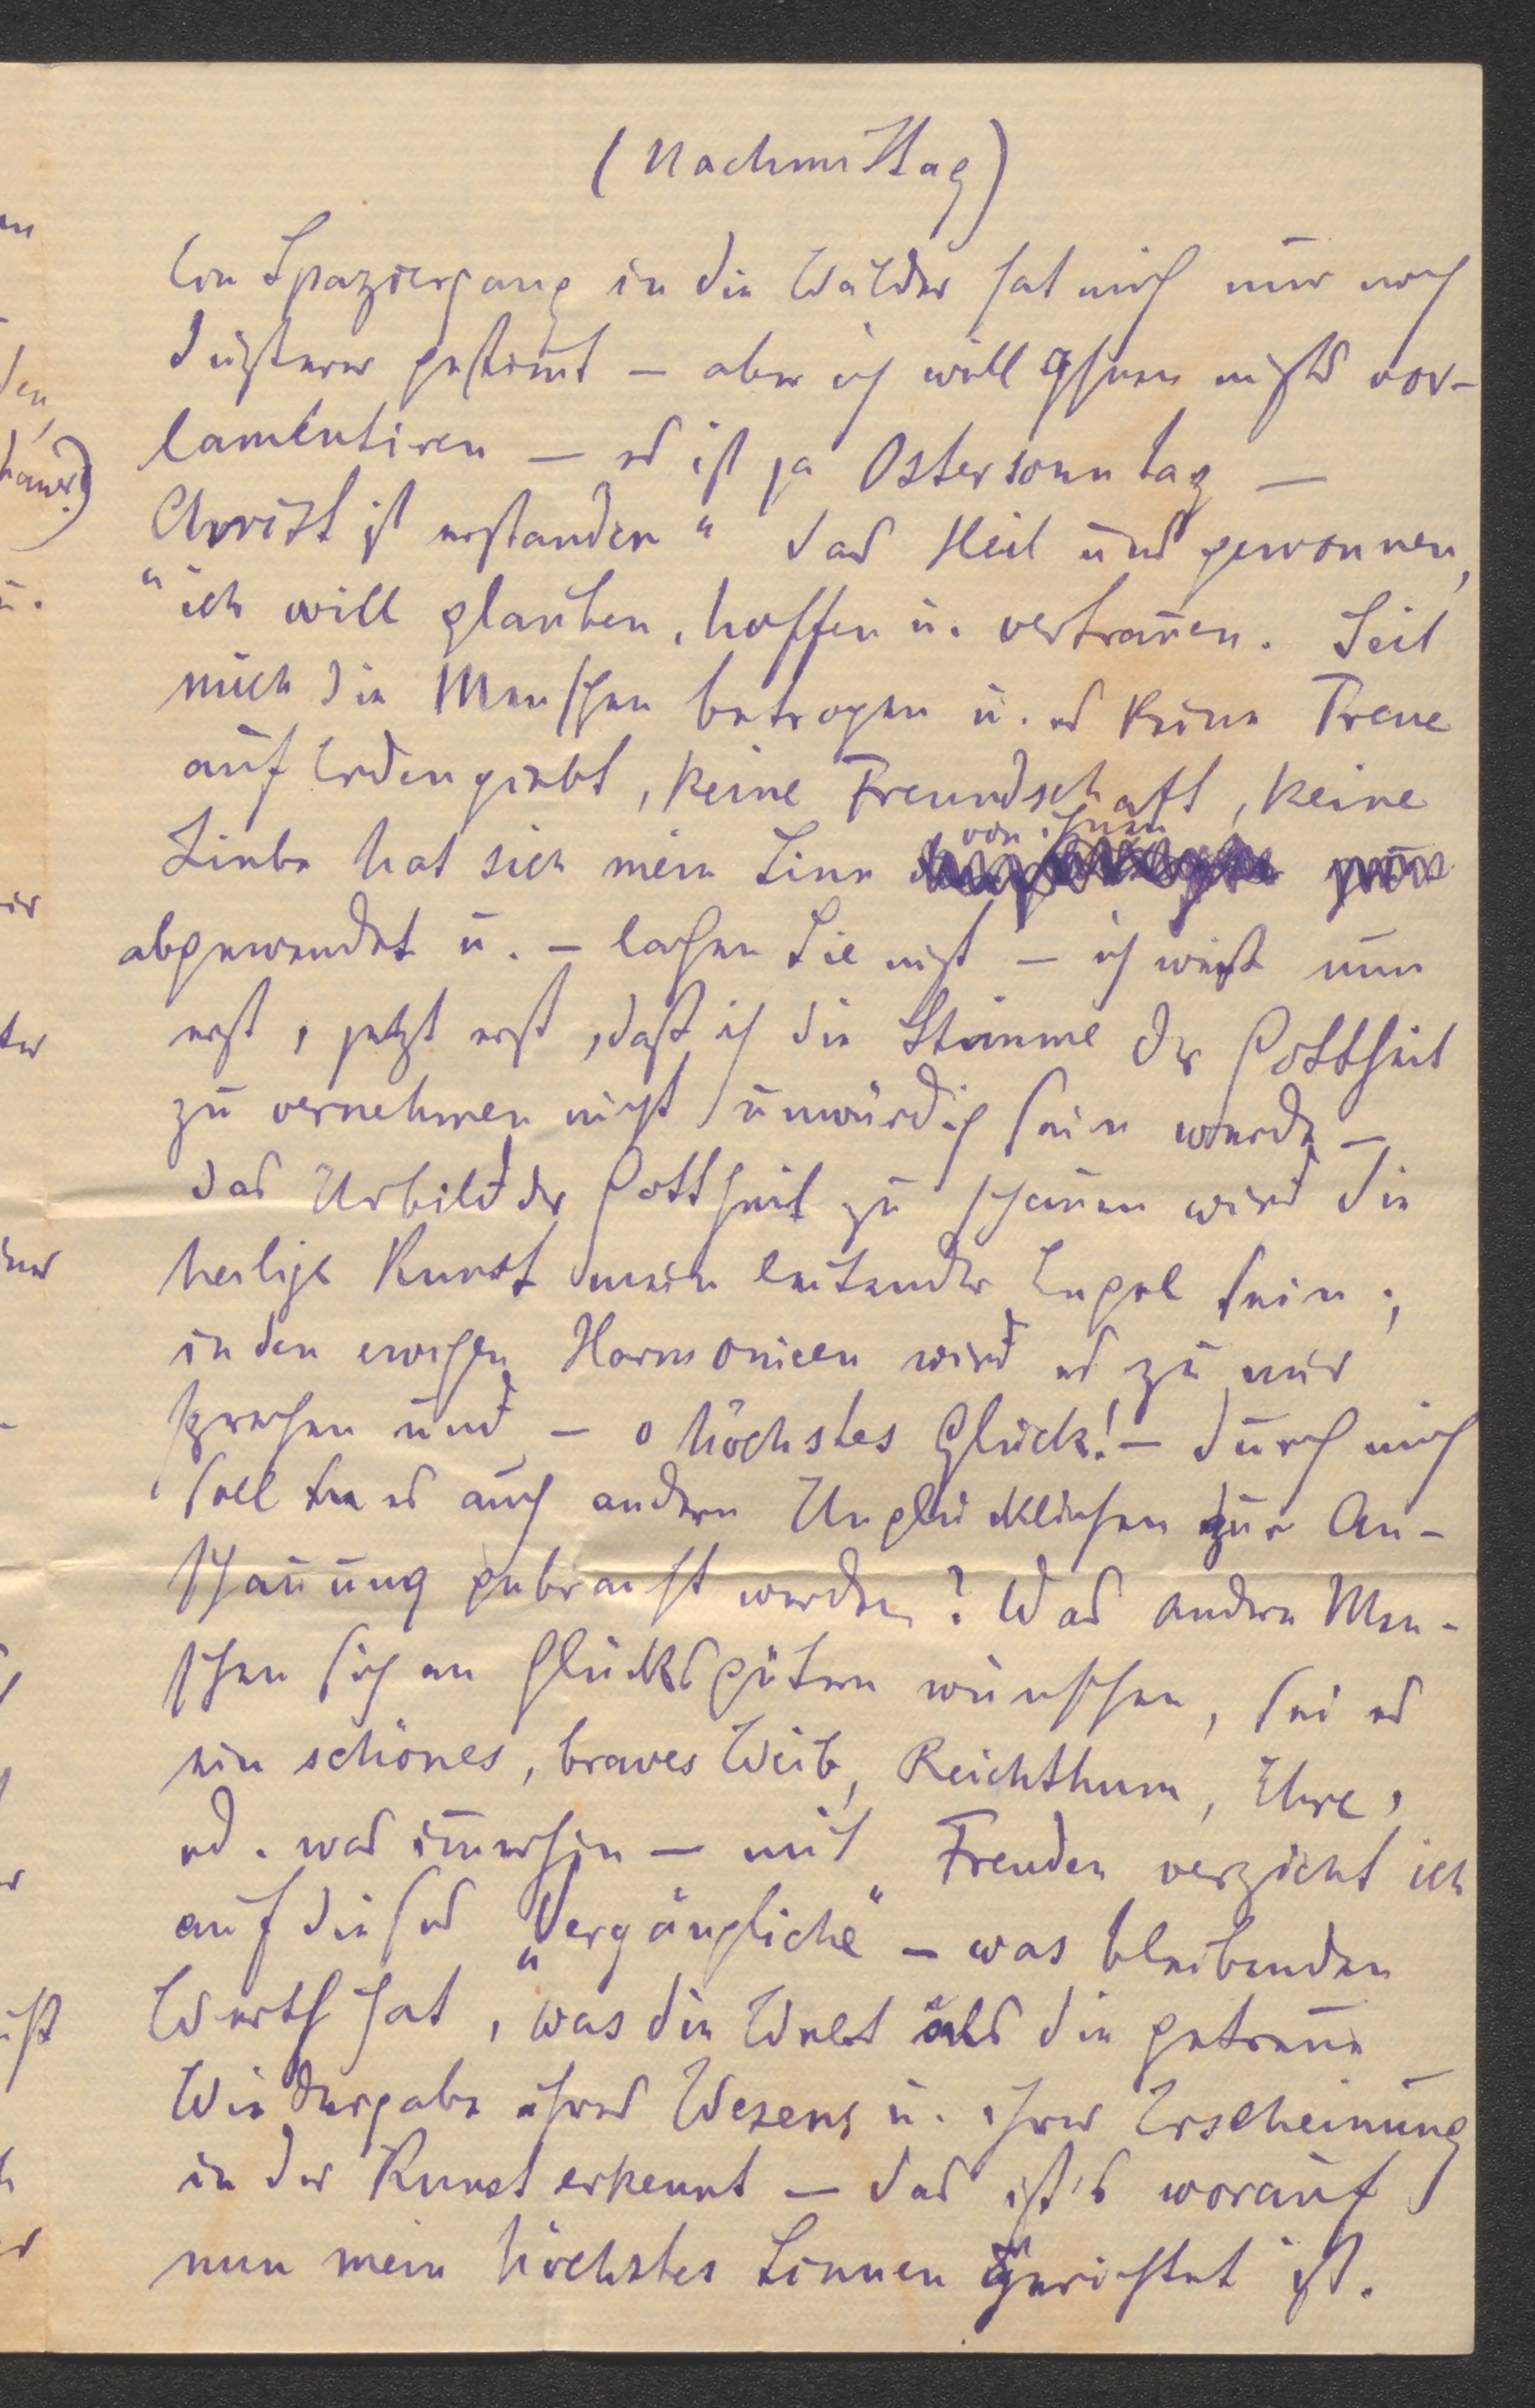 (Nachmittag)
Ein Spaziergang in die Wälder hat mich nur noch
düsterer gestim̄t – aber ich will Ihnen nichts vor-
lamentiren – es ist ja Ostersonntag –
Christ ist erstanden" das Heil uns gewonnen,
"ich will glauben, hoffen u. vertrauen. Seit
mich die Menschen betrogen u. es keine Treue
auf Erden giebt, keine Freundschaft, keine
Liebe hat sich mein Sinn von ihnen
abgewendet u. – lachen Sie nicht – ich weiß nun
erst, jetzt erst, daß ich die Stimme der Gottheit
zu vernehmen nicht unwürdig sein werde –
das Urbild der Gottheit zu schauen wird die
heilige Kunst mein leitender Engel sein;
in den ewigen Harmonieen wird es zu mir
sprechen und – o höchstes Glück! – durch mich
soll es auch andern Unglücklichen zur An-
schauung gebracht werden? Was andere Men-
schen sich an Glücksgütern wünschen, sei es
ein schönes, braves Weib, Reichthum, Ehre,
od. was im̄erhin – mit Freuden verzicht ich
auf dieses „Vergängliche" – was bleibenden
Werth hat, was die Welt als die getreue
Wiedergabe ihres Wesens u. ihrer Erscheinung
in der Kunst erkennt – das ist's worauf
nun mein höchstes Sinnen gerichtet ist.